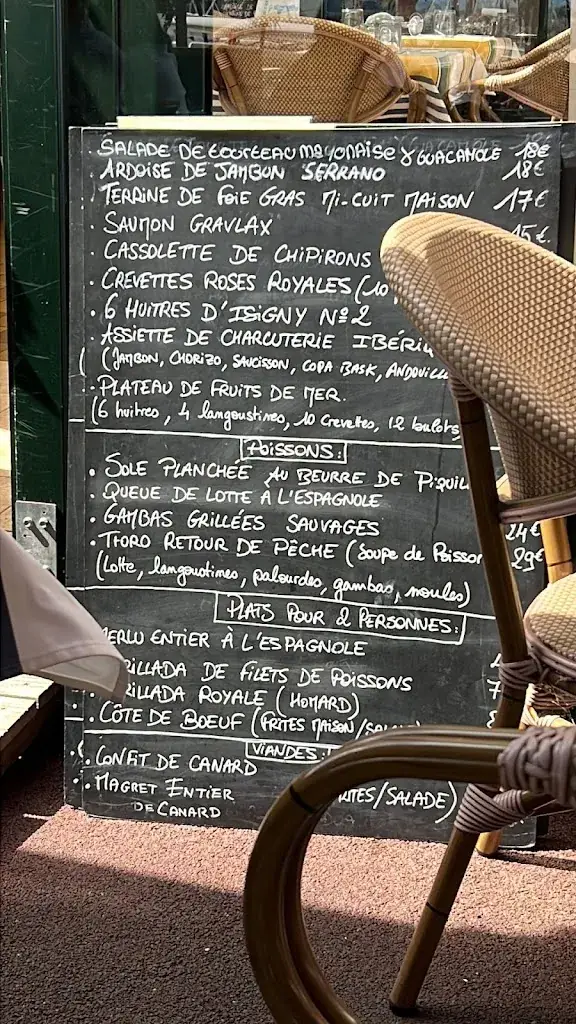 . SALADE DE TOURTEAU MAYONAISE & GUACAMOLE 18€
. ARDOISE DE JAMBON SERRANO 18€
. TERRINE DE FOIE GRAS MI-CUIT MAISON 17€
. SAUMON GRAVLAX 15€
. CASSOLETTE DE CHIPIRONS
. CREVETTES ROSES ROYALES (10
. 6 HUITRES D'ISIGNY Nº2
. ASSIETTE DE CHARCUTERIE IBÉRI
(JAMBON, CHORIZO, SAUCISSON, COPA BASK, ANDOUILL
. PLATEAU DE FRUITS DE MER.
(6 huitres, 4 langoustines, 10 Crevettes, 12 bulots
POISSONS:
. SOLE PLANCHÉE AU BEURRE DE PIQUIL
. QUEUE DE LOTTE À L'ESPAGNOLE
. GAMBAS GRILLÉES SAUVAGES 24€
. TTORO RETOUR DE PÊCHE (Soupe de Poisson 29€
(Lotte, langoustines, palourdes, gambas, moules)
PLATS POUR 2 PERSONNES:
MERLU ENTIER À L'ESPAGNOLE
RILLADA DE FILETS DE POISSONS
RILLADA ROYALE (HOMARD)
. CÔTE DE BOEUF (FRITES MAISON/SALA
VIANDES:
. CONFIT DE CANARD
. MAGRET ENTIER RITES/SALADE)
DE CANARD